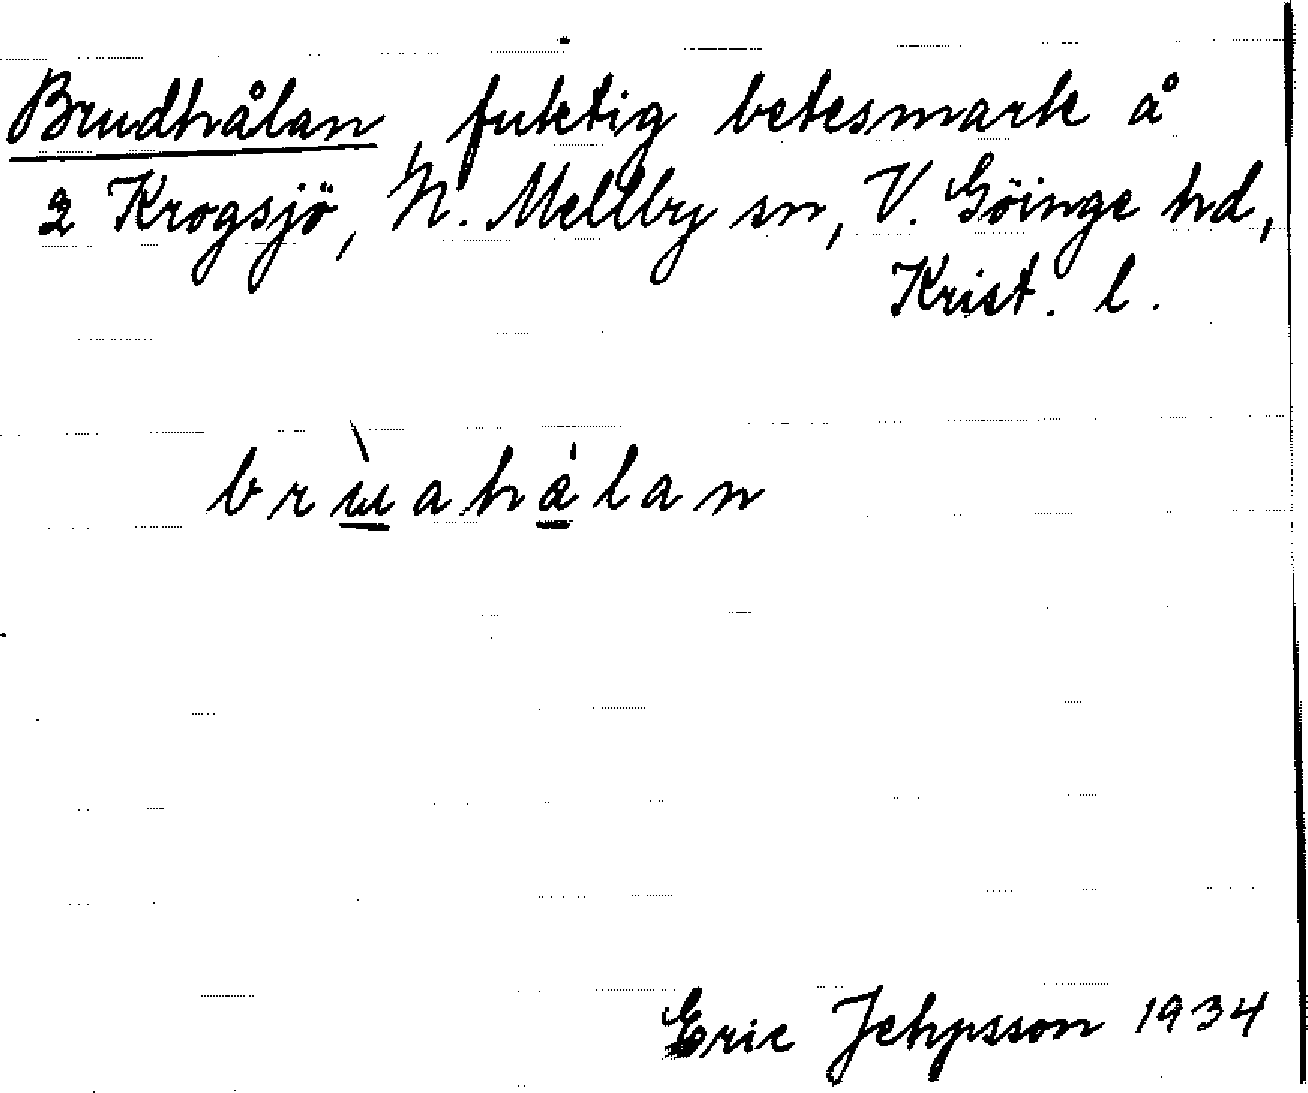 Brudhålan, fuktig betesmark å
2 Krogsjö, N. Mellby sn, V. Göinge hd,
Krist. l.
brɯ̀ahålan
Eric Jehpsson 1934